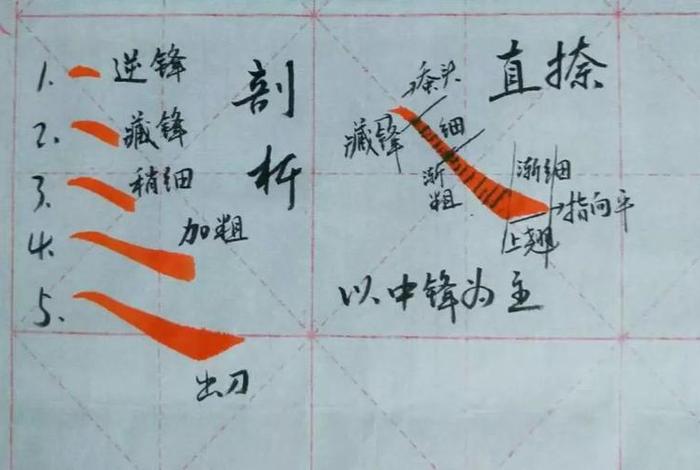 1. 逆锋
2. 藏锋
3. 稍细
4. 加粗
5.
出刀
剖析
直捺
捺头
藏锋
细
渐粗
渐细
指向平
上翘
以中锋为主